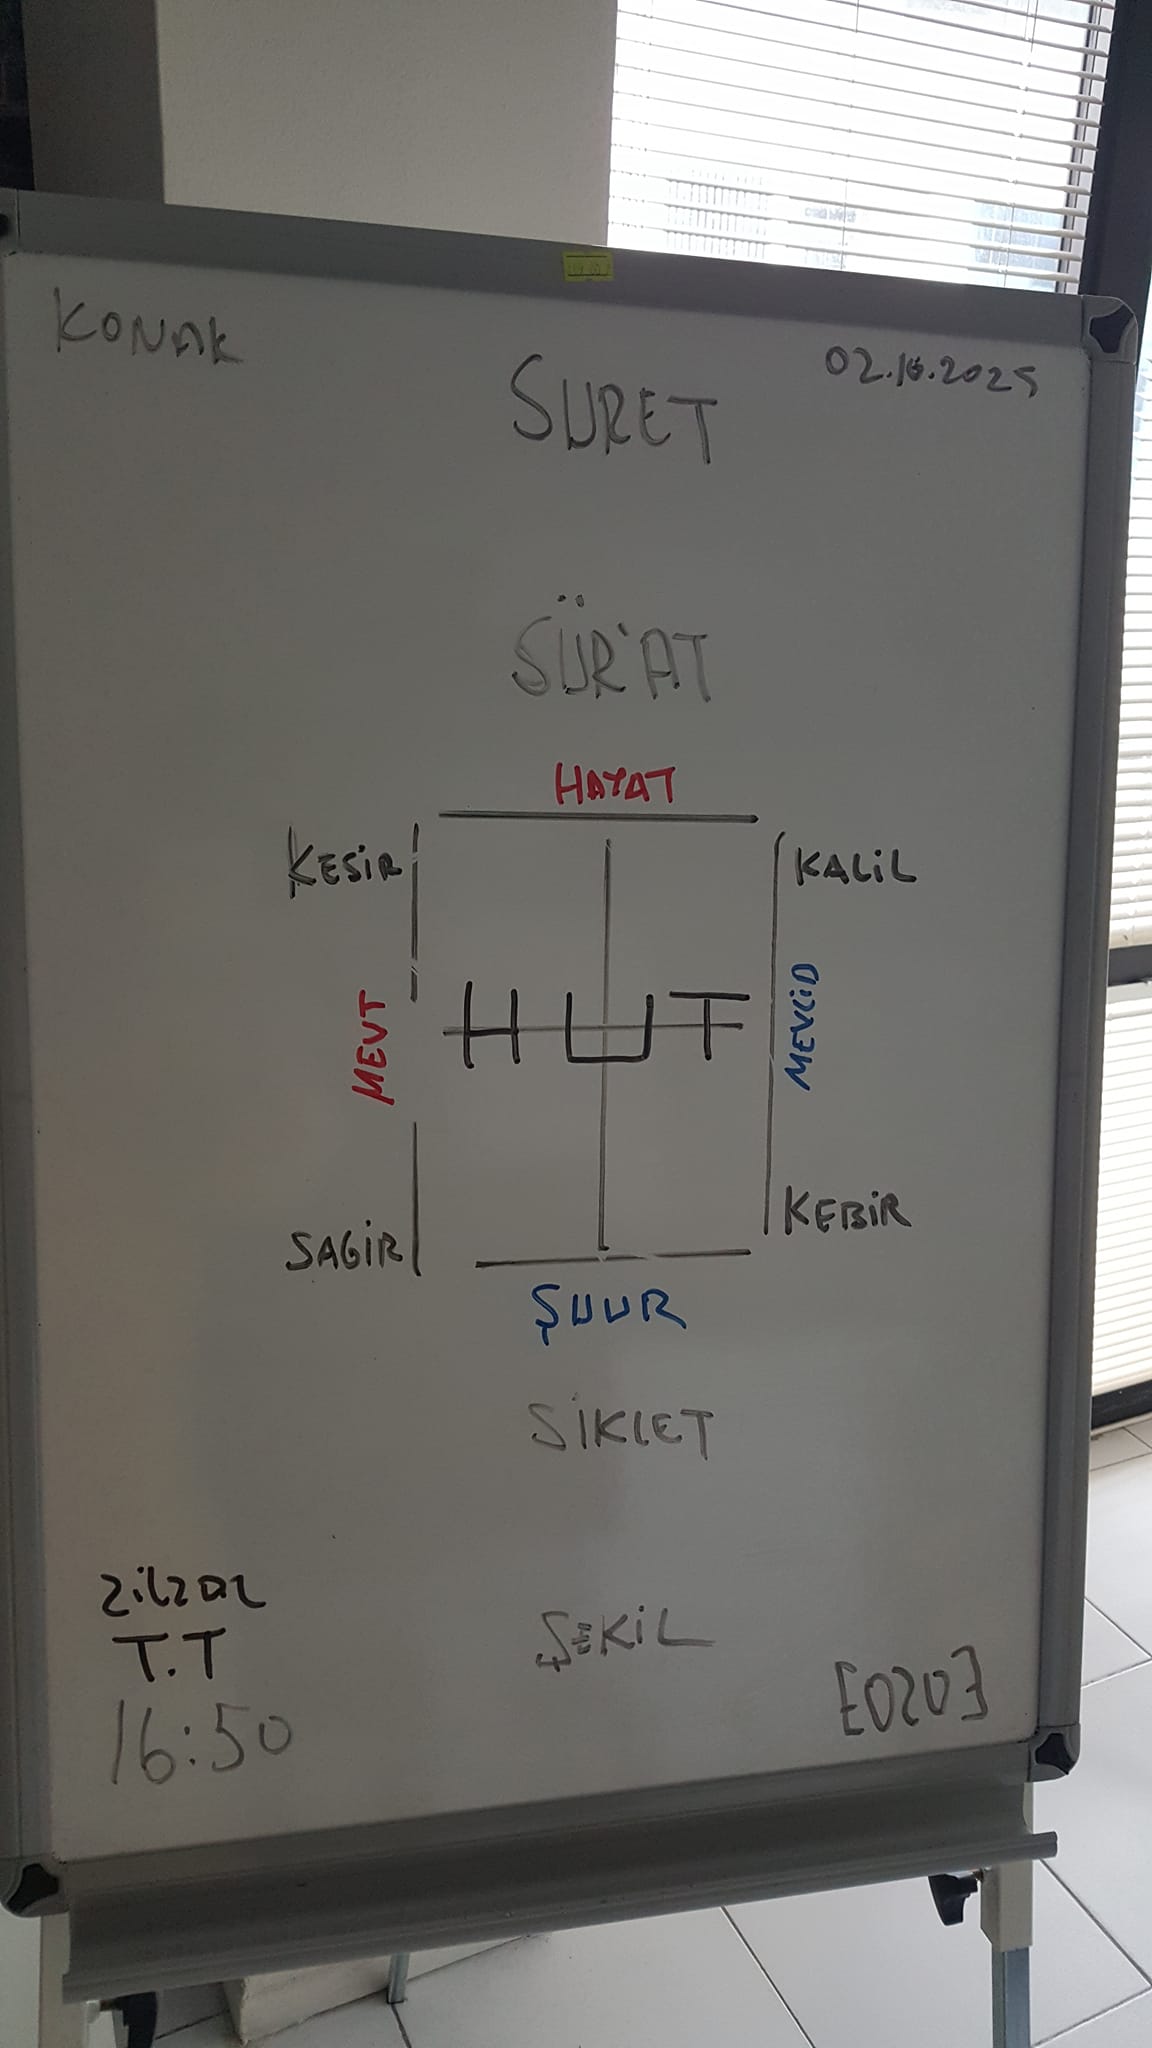 KONAK
02.10.2025
SURET
SÜR'AT
HAYAT
KESİR
KALİL
MEVT
HUT
MEVLİD
SAGİR
KEBİR
ŞUUR
SİKLET
ZİLZAL
T.T
ŞEKİL
16:50
[020]